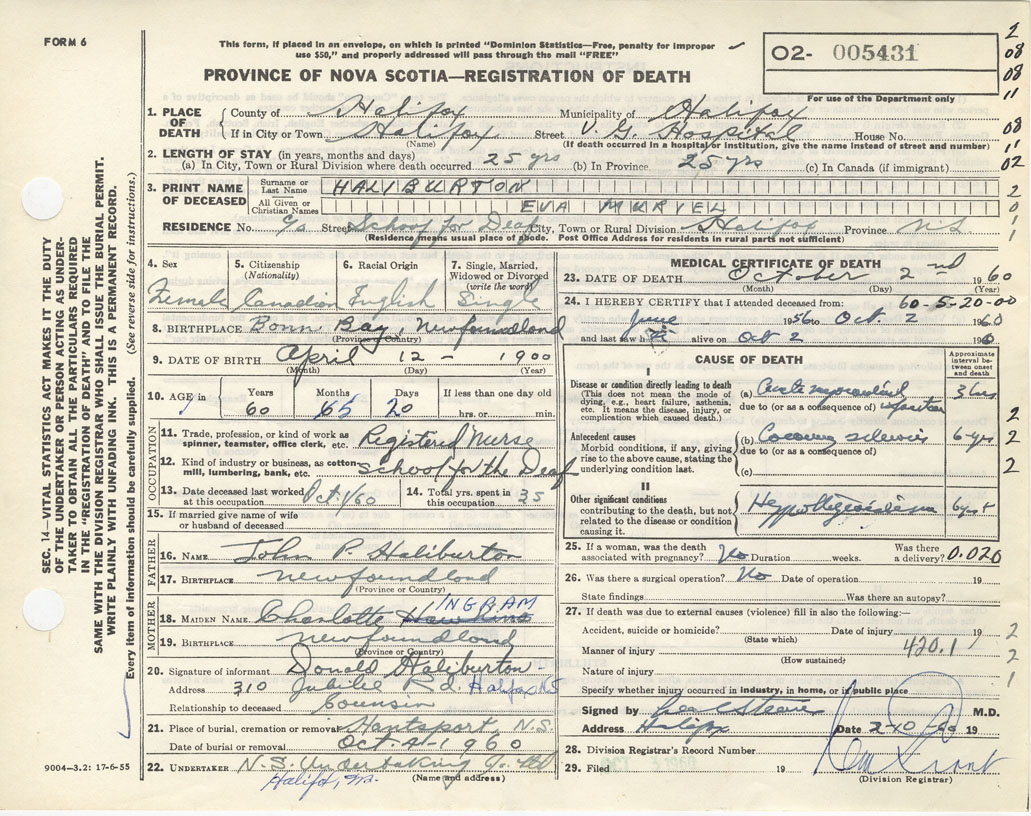 FORM 6
This form, if placed in an envelope, on which is printed "Dominion Statistics—Free, penalty for improper
use $50," and properly addressed will pass through the mail "FREE"
O2- 005431
PROVINCE OF NOVA SCOTIA—REGISTRATION OF DEATH
For use of the Department only
2
08
08
11
08
11
02
2
0
1
1. PLACE OF DEATH
County of Halifax Municipality of Halifax
If in City or Town Halifax Street V. G. Hospital House No.
(Name) (If death occurred in a hospital or institution, give the name instead of street and number)
2. LENGTH OF STAY (in years, months and days)
(a) In City, Town or Rural Division where death occurred 25 yrs (b) In Province 25 yrs (c) In Canada (if immigrant)
3. PRINT NAME OF DECEASED
Surname or Last Name HALIBURTON
All Given or Christian Names EVA MURIEL
RESIDENCE No. c/o Street School for Deaf City, Town or Rural Division Halifax Province NS
(Residence means usual place of abode. Post Office Address for residents in rural parts not sufficient)
4. Sex
Female
5. Citizenship
(Nationality)
Canadian
6. Racial Origin
English
7. Single, Married,
Widowed or Divorced
(write the word)
Single
8. BIRTHPLACE Bonn Bay, Newfoundland
(Province or Country)
9. DATE OF BIRTH April 12 - 1900
(Month) (Day) (Year)
10. AGE in
Years
60
Months
5
Days
20
If less than one day old
hrs. or min.
OCCUPATION
11. Trade, profession, or kind of work as
spinner, teamster, office clerk, etc. Registered Nurse
12. Kind of industry or business, as cotton
mill, lumbering, bank, etc. School for the Deaf
13. Date deceased last worked
at this occupation Oct. 1/60
14. Total yrs. spent in
this occupation 35
15. If married give name of wife
or husband of deceased
FATHER
16. NAME John P. Haliburton
17. BIRTHPLACE Newfoundland
(Province or Country)
MOTHER
18. MAIDEN NAME Charlotte INGRAM
19. BIRTHPLACE Newfoundland
(Province or Country)
20. Signature of informant Donald Haliburton
Address 310 Jubilee Rd. Halifax NS
Relationship to deceased Counsin
21. Place of burial, cremation or removal Hantsport, N.S.
Date of burial or removal Oct-4-1960
22. UNDERTAKER N.S. Undertaking Co. Ltd
(Name and address)
MEDICAL CERTIFICATE OF DEATH
23. DATE OF DEATH October 2nd 1960
(Month) (Day) (Year)
24. I HEREBY CERTIFY that I attended deceased from: 60-5-20-00
June 1956 to Oct. 2 1960
and last saw h alive on Oct 2 196
CAUSE OF DEATH
Approximate
interval be-
tween onset
and death
I
Disease or condition directly leading to death
(This does not mean the mode of
dying, e.g., heart failure, asthenia,
etc. It means the disease, injury, or
complication which caused death.)
(a) Acute myocardial
due to (or as a consequence of) infarction
3 hrs
Antecedent causes
Morbid conditions, if any, giving
rise to the above cause, stating the
underlying condition last.
(b) Coronary sclerosis
due to (or as a consequence of)
(c)
6 yrs
II
Other significant conditions
contributing to the death, but not
related to the disease or condition
causing it.
6 yrs
2
2
2
25. If a woman, was the death
associated with pregnancy? No Duration weeks. Was there
a delivery? 0.020
26. Was there a surgical operation? No Date of operation 19
State findings Was there an autopsy?
27. If death was due to external causes (violence) fill in also the following:—
Accident, suicide or homicide? Date of injury 19
(State which)
Manner of injury 420.1
(How sustained)
Nature of injury
Specify whether injury occurred in industry, in home, or in public place
2
2
1
Signed by M.D.
Address Halifax Date 2-10-60 19
28. Division Registrar's Record Number
29. Filed 19
(Division Registrar)
SEC. 14—VITAL STATISTICS ACT MAKES IT THE DUTY
OF THE UNDERTAKER OR PERSON ACTING AS UNDER-
TAKER TO OBTAIN ALL THE PARTICULARS REQUIRED
IN THE "REGISTRATION OF DEATH" AND TO FILE THE
SAME WITH THE DIVISION REGISTRAR WHO SHALL ISSUE THE BURIAL PERMIT.
WRITE PLAINLY WITH UNFADING INK. THIS IS A PERMANENT RECORD.
Every item of information should be carefully supplied. (See reverse side for instructions.)
9004—3.2: 17-6-55